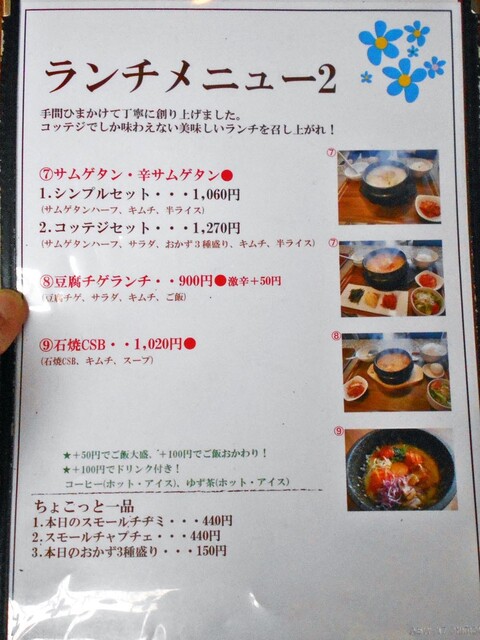 ランチメニュー2
手間ひまかけて丁寧に創り上げました。
コッテジでしか味わえない美味しいランチを召し上がれ！
⑦サムゲタン・辛サムゲタン●
1.シンプルセット・・・1,060円
(サムゲタンハーフ、キムチ、半ライス)
2.コッテジセット・・・1,270円
(サムゲタンハーフ、サラダ、おかず3種盛り、キムチ、半ライス)
⑧豆腐チゲランチ・・900円●激辛＋50円
(豆腐チゲ、サラダ、キムチ、ご飯)
⑨石焼CSB・・1,020円●
(石焼CSB、キムチ、スープ)
⑦
⑦
⑧
⑨
★＋50円でご飯大盛、＋100円でご飯おかわり！
★＋100円でドリンク付き！
コーヒー(ホット・アイス)、ゆず茶(ホット・アイス)
ちょこっと一品
1.本日のスモールチヂミ・・・440円
2.スモールチャプチェ・・・440円
3.本日のおかず3種盛り・・・150円